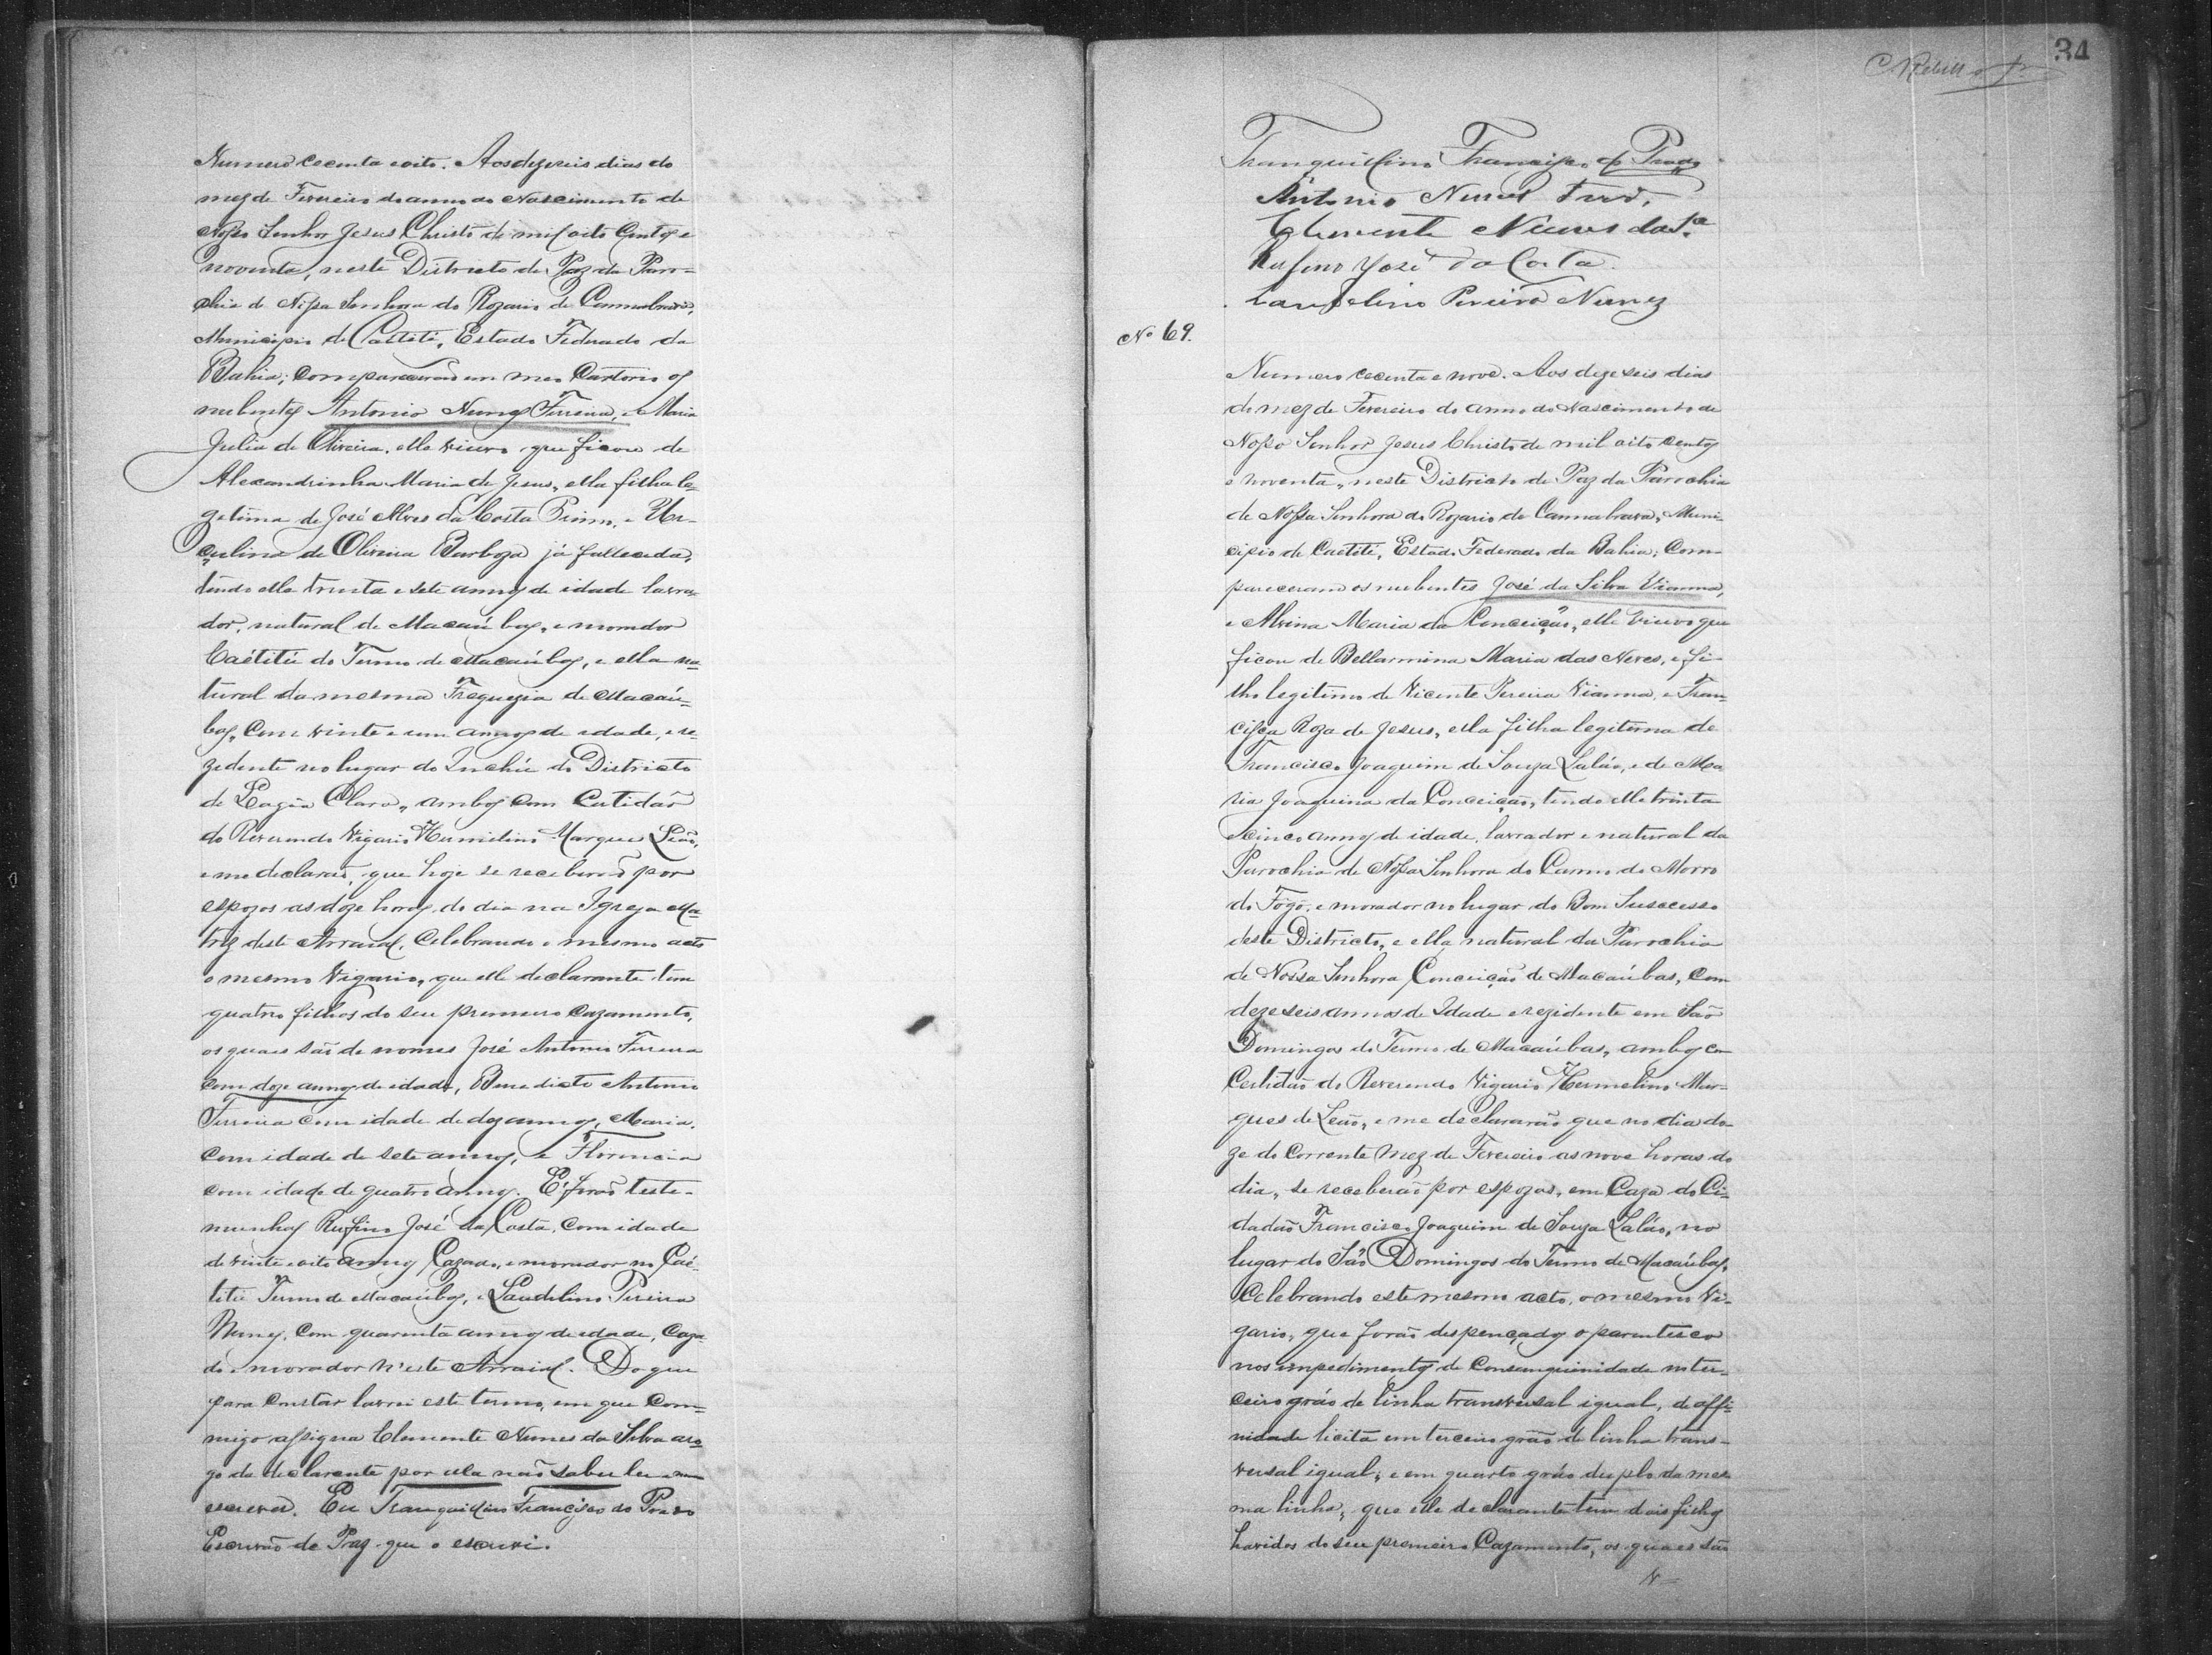 Numero cecenta eoito. Aos dezeseis dias do
mez de Fevereiro do anno do Nascimento de
Nosso Senhor Jesus Christo de mil oito Centos e
noventa, neste Districto de Paz da Paro-
chia de Nossa Senhora do Rozario de Cannabrava,
Municipio de Caetité, Estado Federado da
Bahia; comparecerão em meu Cartorio os
nubentes Antonio Nunes Ferreira, e Maria
Julia de Oliveira, elle viuvo que ficou de
Alexandrinha Maria de Jesus, ella filha le-
getima de José Alves da Costa Primo, e Ur-
culina de Oliveira Barboza já fallecida,
tendo elle trinta e sete annos de idade lavra-
dor, natural de Macaúbas, e morador
Caétitú do Termo de Macaúbas, e ella na-
tural da mesma Freguezia de Macaú-
bas, com vinte e um annos de idade, e re-
zidente no lugar do Inchú do Districto
de Lagôa Clara, ambos com Cutidão
do Reverendo Vigario Hermelino Marques Leão,
e me declarão, que hoje se receberão por
espozos as doze horas do dia na Igreja Ma-
triz deste Arraial, Celebrando o mesmo acto
o mesmo Vigario, que elle declarante tem
quatro filhos do seu premeiro Cazamento,
os quaes são de nomes José Antonio Ferreira
com doze annos de idade, Benedicto Antonio
Ferreira com idade de dez annos, Maria,
com idade de sete annos, e Florencia
com idade de quatro annos. E forão teste-
munhas Rufino José da Costa, com idade
de vinte e oito annos Cazado, e morador no Caé-
titú Termo de Macaúbas, e Laudelino Pereira
Nunes, com quarenta annos de idade, Caza-
do e morador n'este Arraial. Do que
para constar lavrei este termo, em que Com-
migo assigna Clemente Nunes da Silva aro-
go da declarante por ella não saber ler e nem
escrever. Eu Tranquillino Francisco do Prado
Escrivão de Paz que o escrivi.
34
Tranquillino Francisco do Prado
Antonio Nunes Ferrª.
Clemente Nunes da Sª
Rufino José da Costa.
Laudelino Pereira Nunes
Nº 69.
Numero cecenta e nove. Aos dezeseis dias
do mez de Fevereiro do anno do Nascimento de
Nosso Senhor Jesus Christo de mil oito centos
e noventa, neste Districto de Paz da Parochia
de Nossa Senhora do Rozario de Cannabrava, Muni-
cipio de Caetité, Estado Federado da Bahia; Com-
pareceram os nubentes José da Silva Vianna,
e Alvina Maria da Conceição, elle viuvo que
ficou de Bellarmina Maria das Neves, e fi-
lho legitimo de Vicente Pereira Vianna, e Fran-
cisca Roza de Jesus, ella filha legitima de
Francisco Joaquim de Souza Laláo, e de Ma
ria Joaquina da Conceição, tendo elle trinta
e cinco annos de idade, lavrador e natural da
Parochia de Nossa Senhora do Carmo do Morro
do Fogo, e morador no lugar do Bom Successo
deste Districto, e ella natural da Parochia
de Nossa Senhora Conceição de Macaúbas, com
dezeseis annos de Idade e rezidente em São
Domingos do Termo de Macaúbas, ambos co
Certidão do Reverendo Vigario Hermelino Mar-
ques de Leão, e me declararão que no dia do-
ze do corrente mez de Fevereiro as nove horas do
dia, se receberão por espozos, em Caza do Ci-
dadão Francisco Joaquim de Souza Laláo, no
lugar do São Domingos do Termo de Macaúbas,
Celebrando este mesmo acto, o mesmo Vi-
gario, que forão despençados o parentesco
nos impedimentos de Consanguinidade nter-
ceiro gráo de linha transversal igual, de affi-
nidade licita em terceiro gráo de linha trans-
versal igual, e em quarto gráo duplo da mes
ma linha, que elle declarante tem dois filhos
havidos do seu premeiro Cazamento, os quaes são